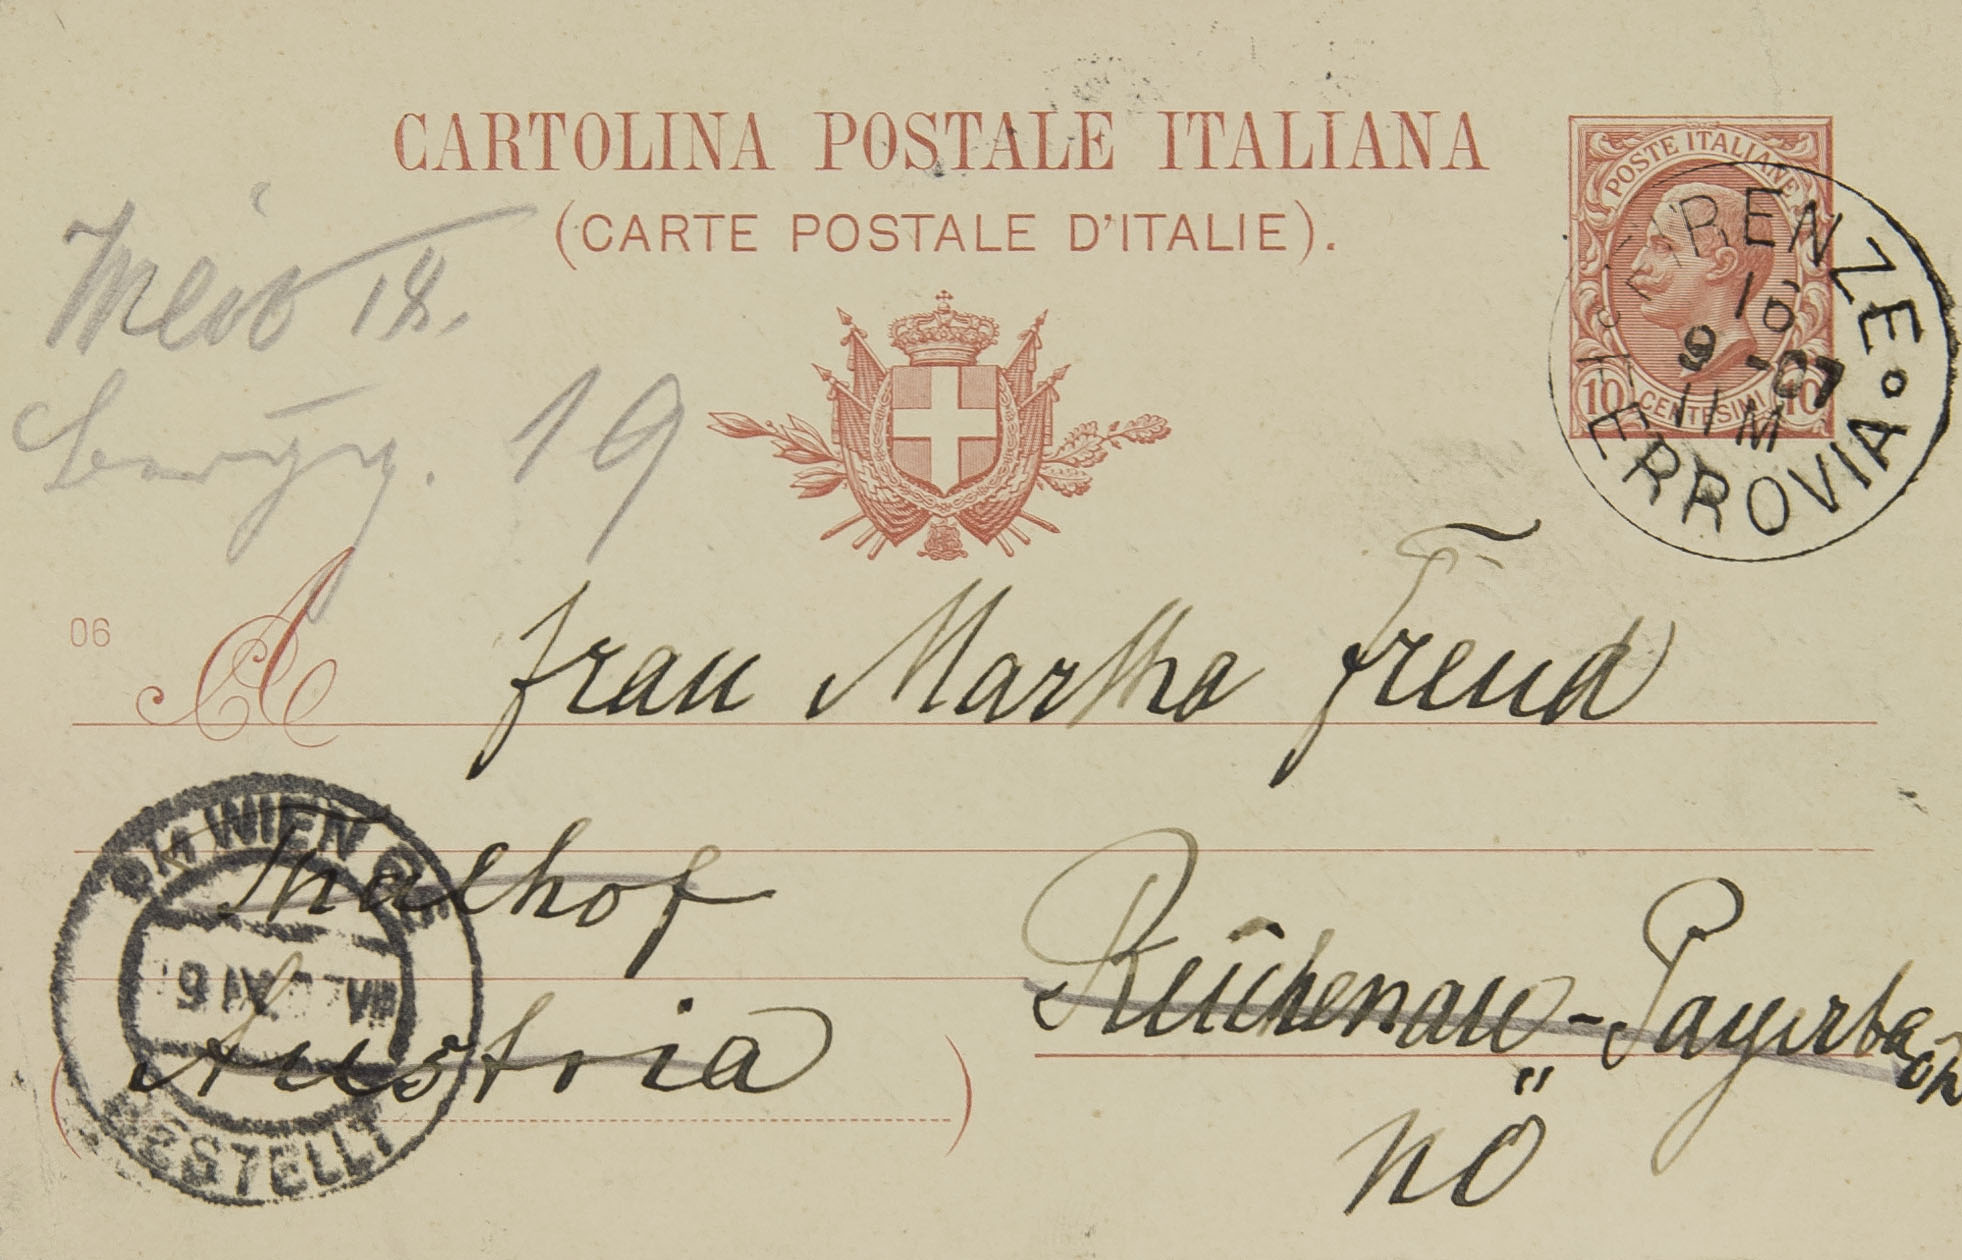 CARTOLINA POSTALE ITALIANA
(CARTE POSTALE D'ITALIE).
POSTE ITALIANE
10 CENTESIMI 10
FIRENZE
16
9 - 07
11 M
FERROVIA
Wien IX.
Berggasse. 19
06
A Frau Martha Freud
Thalhof
Reichenau - Payerba
Austria
NÖ
WIEN
9 IX 07 VIII
BESTELLT